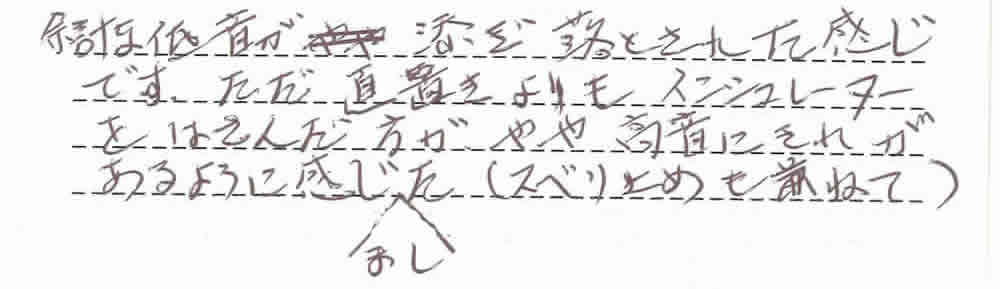 余計な低音が そぎ落とされた感じ
です。ただ直置きよりもインシュレーター
をはさんだ方がやや高音にきれが
あるように感じました（スベリ止めも兼ねて）